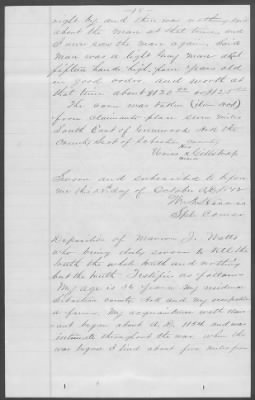 night by and there was nothing said
about the mare at that time and
I never saw the mare again, Said
mare was a light bay mare about
fifteen hands high, four years old
in good order and worth at
that time about $120.00 or $125.00
The corn was taken (item 2nd)
from claimants place seven miles
South East of Greenwood Ark the
County Seat of Sebastian County
his
x
mark
Sworn and subscribed to before
me this day of October A.D. 1872
Spl. Comsr
Deposition of Marion J. Watts
who being duly sworn to tell the
truth the whole truth and nothing
but the truth. Testifies as follows
My age is 36 years. My residence
Sebastian county Ark and my occupation
a farmer. My acquaintance with
began about A.D. and was
intimate throughout the war. when the
war begun I lived about five miles from